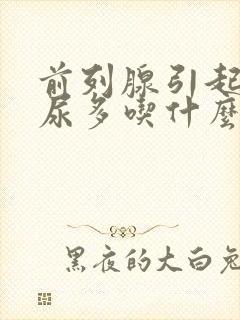 前列腺引起
尿多喫什麼
黑夜的大白兔